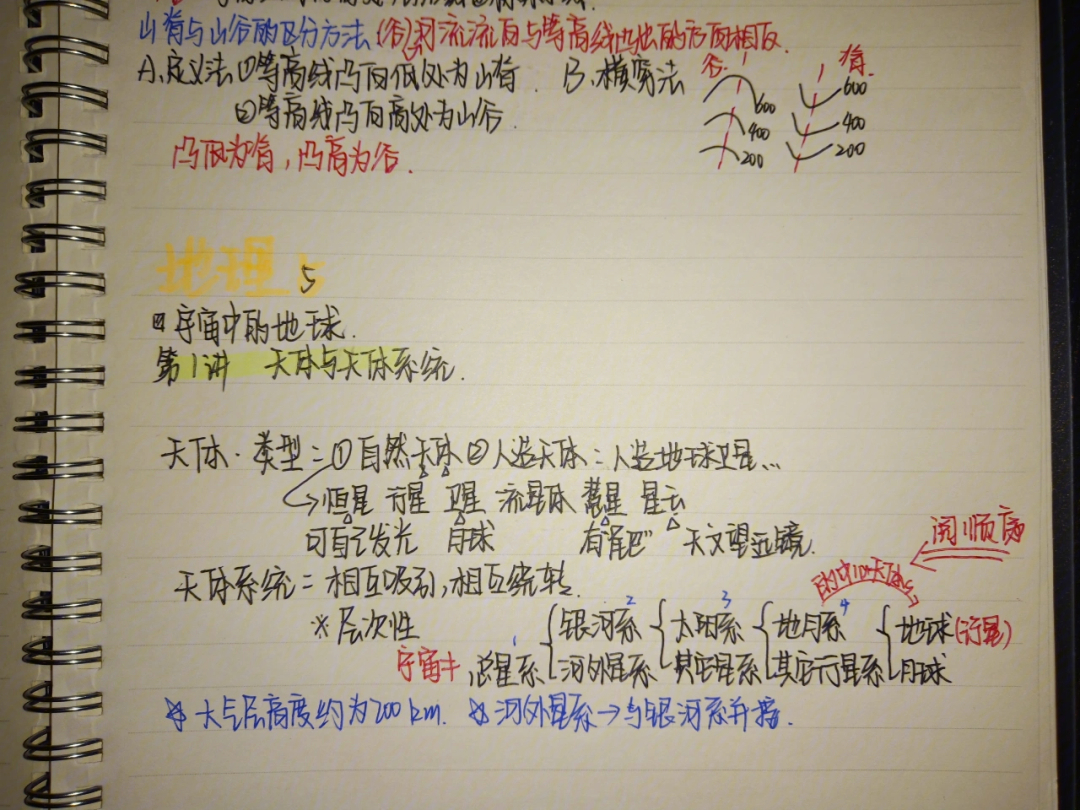 山脊与山谷的区分方法 (谷) 河流流向与等高线凸出的方向相反.
A.定义法 ①等高线凸向低处为山脊. B.横穿法
②等高线凸向高处为山谷.
凸低为脊，凸高为谷.
谷 脊.
600 600
400 400
200 200
地理 5
宇宙中的地球.
第1讲 天体与天体系统.
天体·类型：①自然天体 ②人造天体：人造地球卫星...
→恒星 行星 卫星 流星体 彗星 星云
可自己发光 月球 有"尾巴" 天文望远镜.
天体系统＝相互吸引,相互绕转.
※层次性
宇宙 总星系 1 { 银河系 2 { 太阳系 3 { 地月系 4 { 地球(行星)
河外星系 其它星系 其它行星系 月球
大气层高度约为200km. 河外星系→与银河系并措.